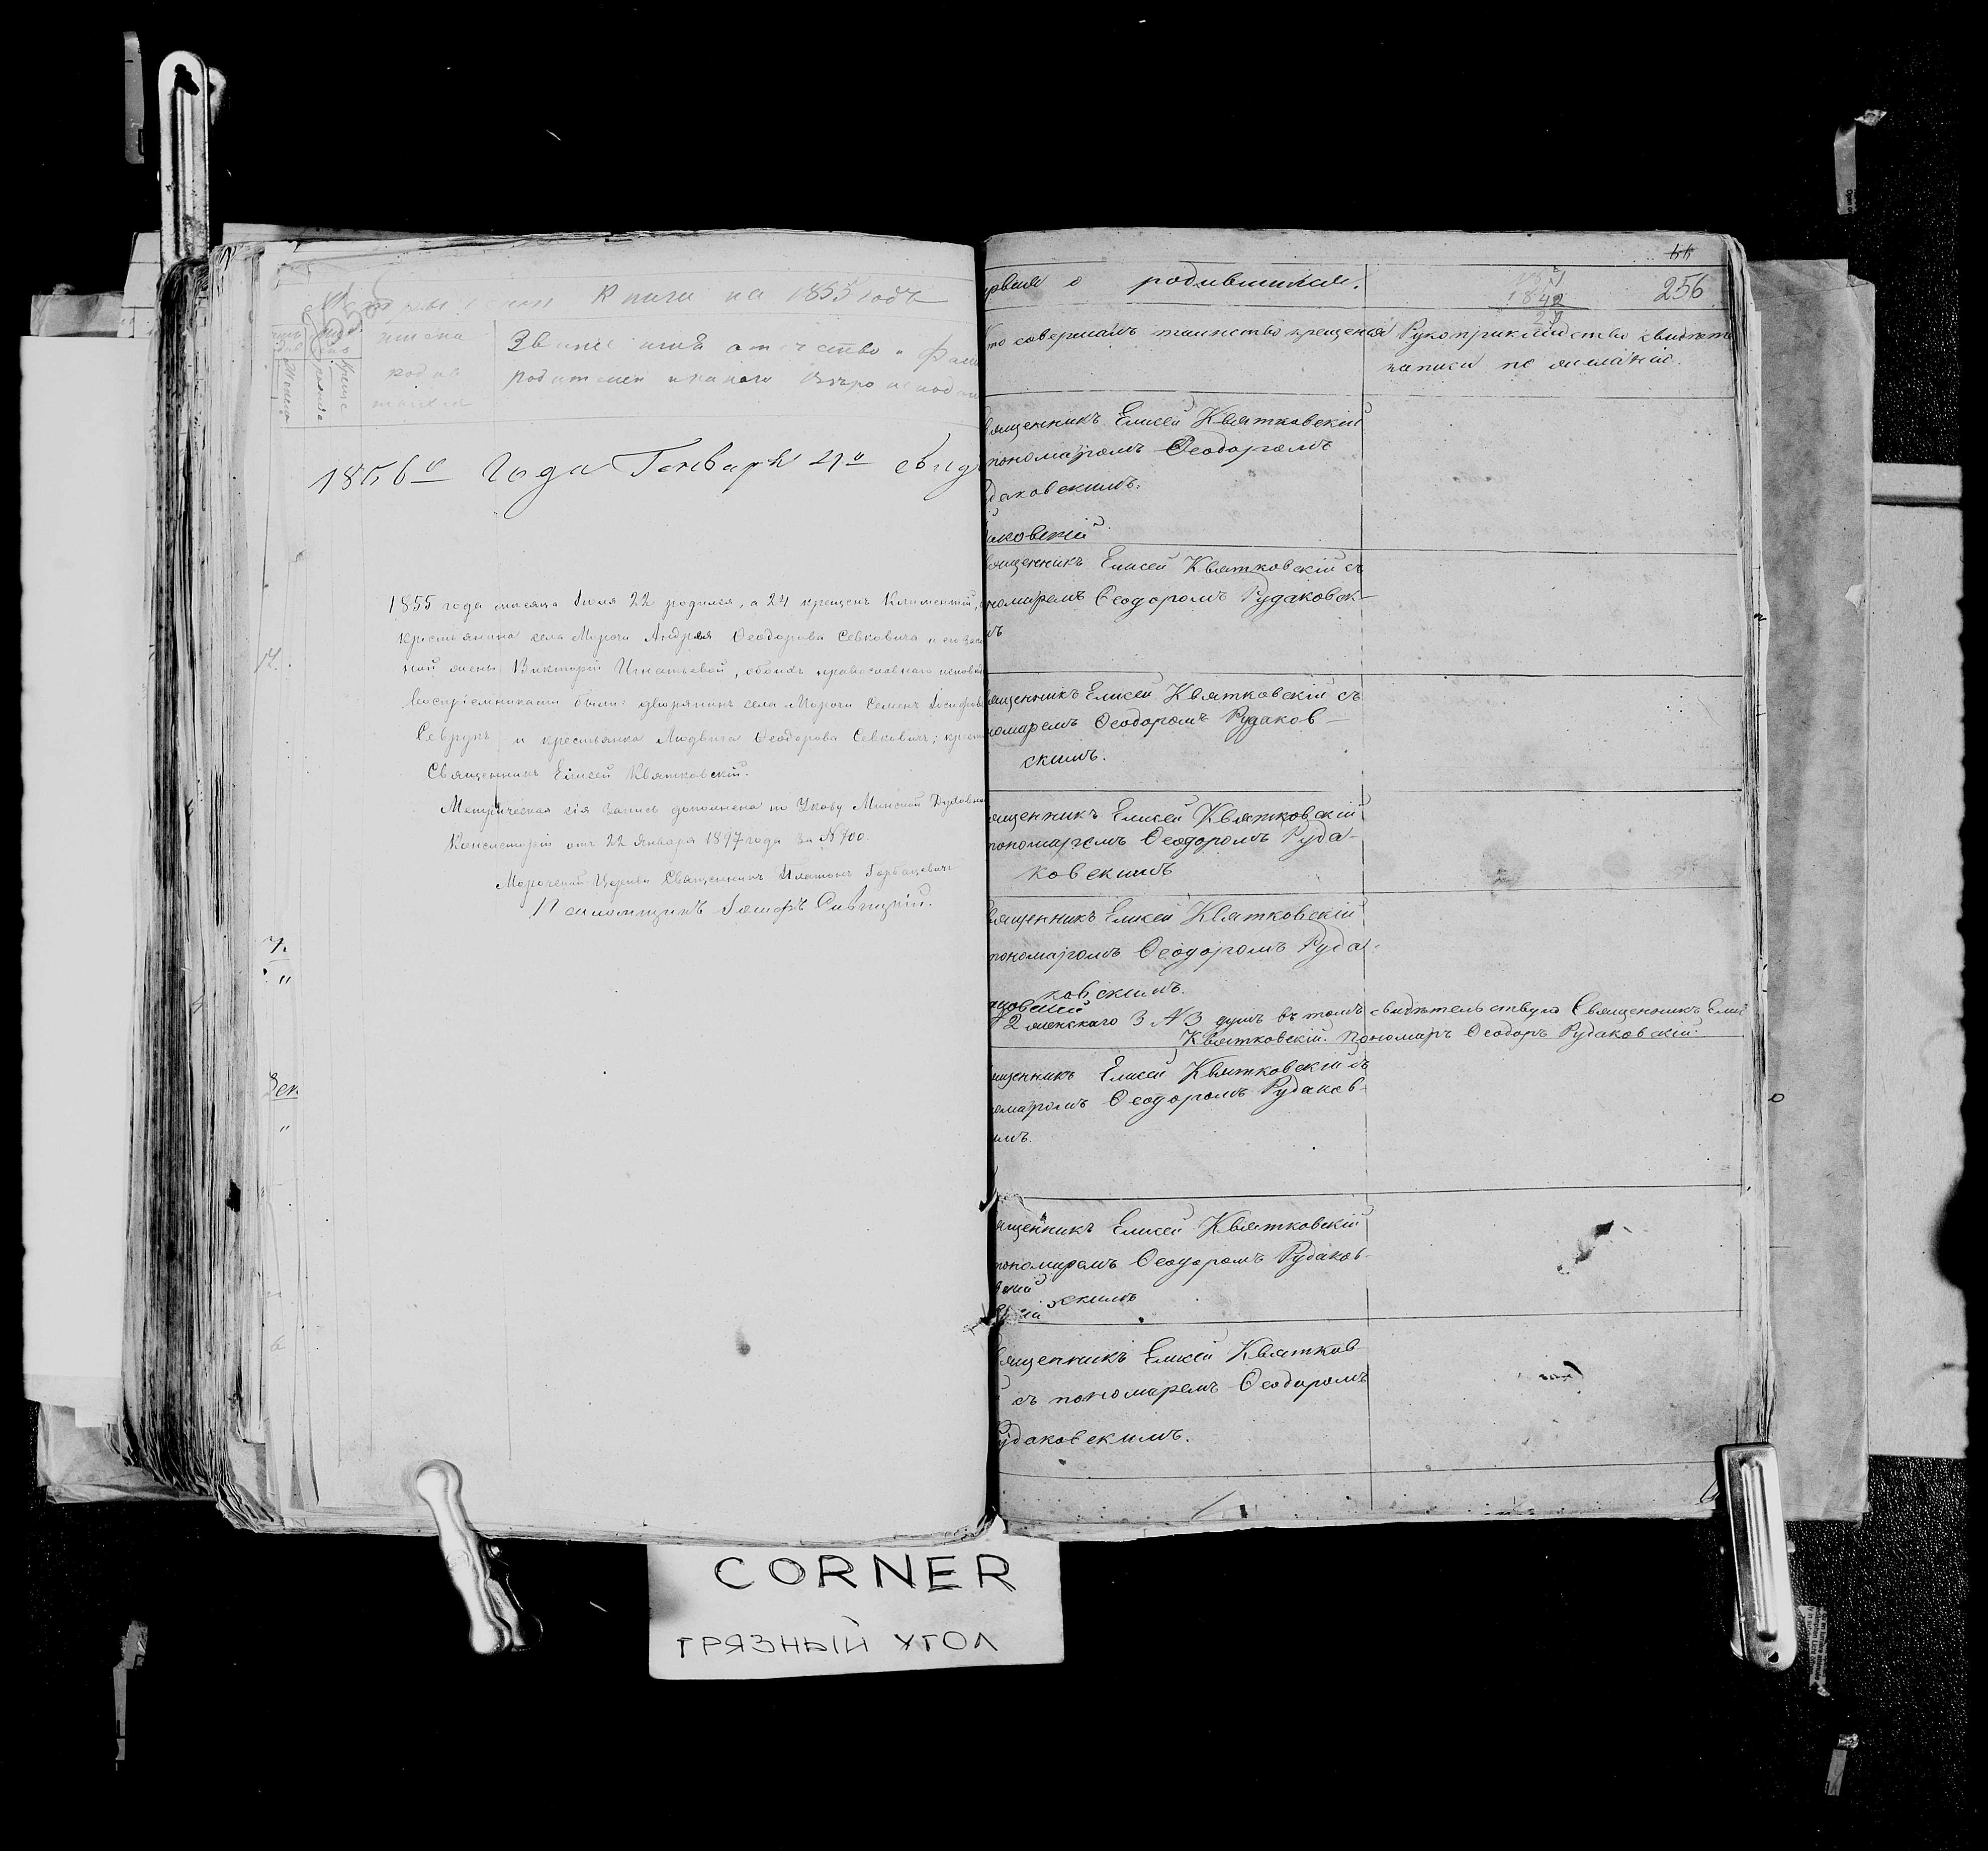 Книги на 1855 годъ
имена
родив
Званіе имя отчество и Фами
Родителей и какого Вѣро исповѣд
1856го Года Генваря 21го
1855 года мѣсяца Іюля 22 родился, а 24 крещенъ Климентій,
Крестьянина села Морочи Андрея Ѳеодорова Севковича и его зако
ной жены Викторіи Игнатьевой, обоихъ православнаго исповѣд
Воспріемниками были: дворянинъ села Морочи Семенъ Іосифов
Севрукъ и крестьянка Людвига Ѳеодорова Севковичъ; крест
Священникъ Елисей Квятковскій.
Метрическая сія запись дополнена по Указу Минской Духовной
Консисторіи отъ 22 Января 1897 года за №700.
Морочской Церкви Священникъ Платонъ Горбацевичъ
Псаломщикъ Іосифъ Савицкій.
рвая о родившихся.
1842
256
то совершалъ таинство крещенія
Рукоприкладство свидѣте
записи по желанію.
вященникъ Елисей Квятковскій
пономаромъ Ѳеодоромъ
даковскимъ.
ковскій
вященникъ Елисей Квятковскій съ
номаремъ Ѳеодоромъ Рудаковск-
мъ
вященникъ Елисей Квятковскій съ
номаремъ Ѳеодоромъ Рудаков-
скимъ.
вященникъ Елисей Квятковскій
пономаремъ Ѳеодоромъ Руда-
ковскимъ
вященникъ Елисей Квятковскій
пономаромъ Ѳеодоромъ Руда-
ковскимъ.
2 женскаго 3 № 3 душъ въ томъ свидѣтельствую Священникъ Елис
Квятковскій. Пономаръ Ѳеодоръ Рудаковскій.
ященникъ Елисей Квятковскій съ
омаромъ Ѳеодоромъ Рудаков-
имъ.
ященникъ Елисей Квятковскій
пономаремъ Ѳеодоромъ Рудаков-
скимъ
вященникъ Елисей Квятков-
съ пономаремъ Ѳеодоромъ
Рудаковскимъ.
CORNER
ГРЯЗНЫЙ УГОЛ